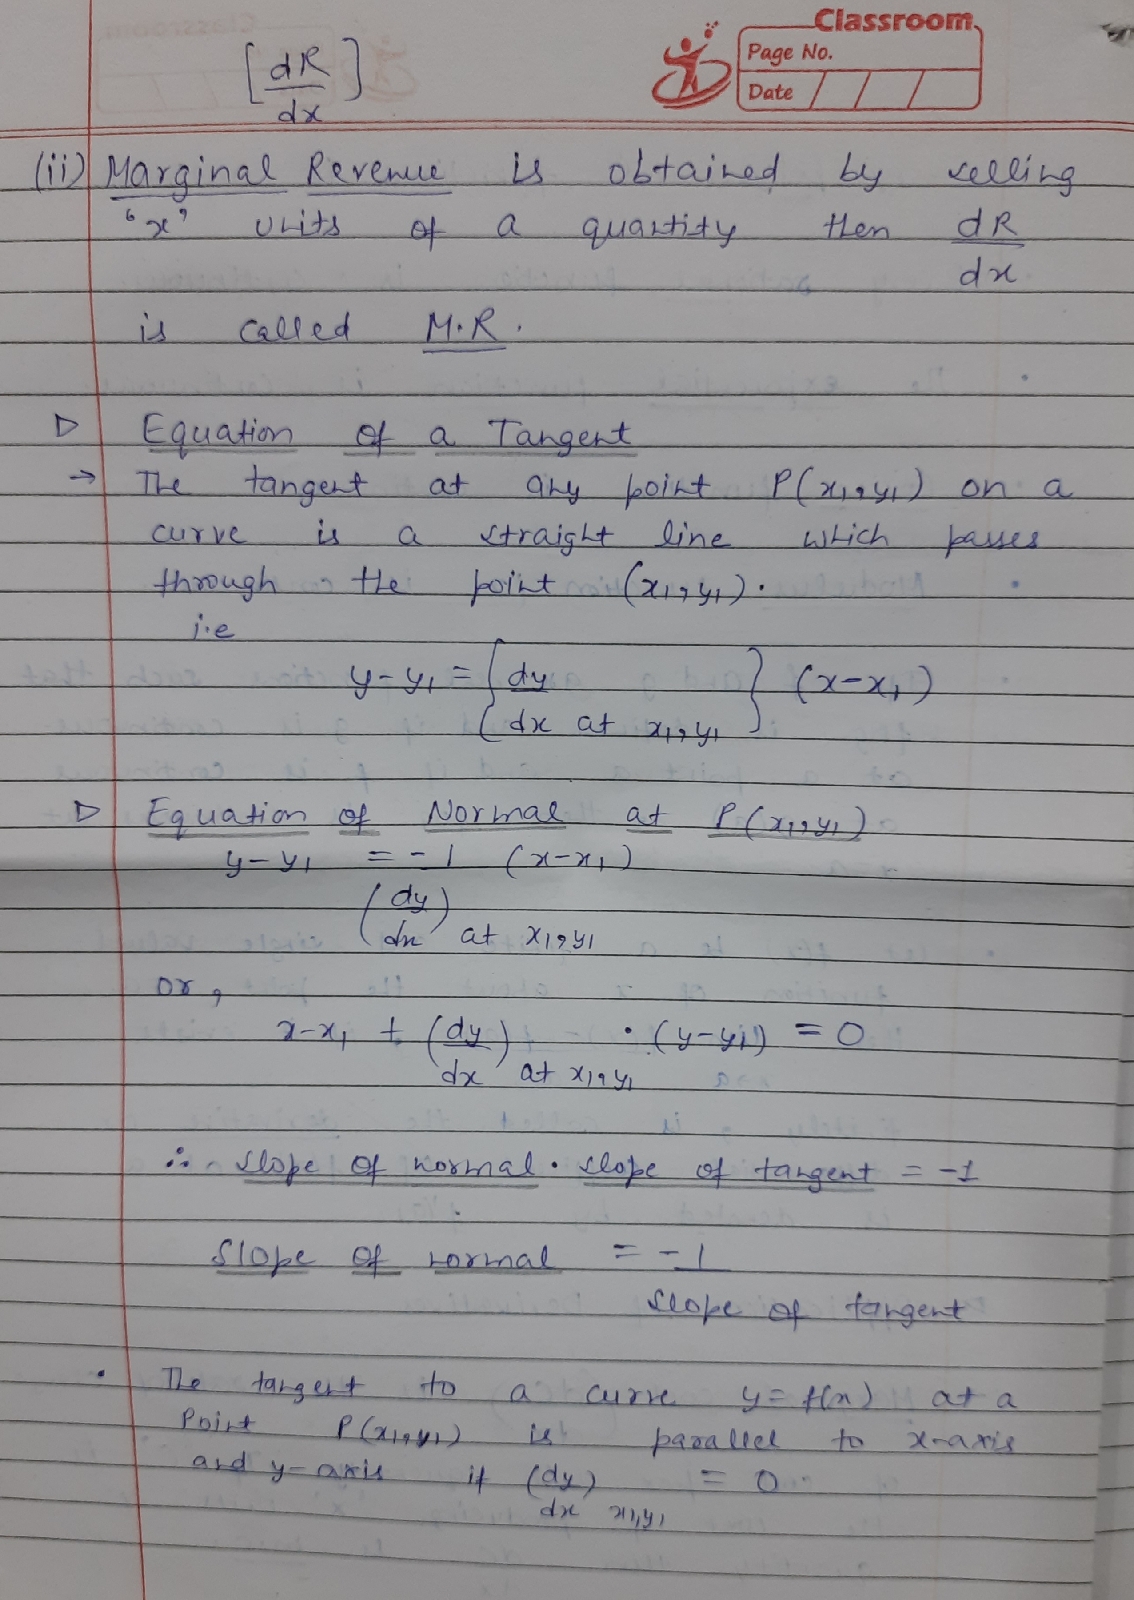 Classroom
Page No.
Date
[dR/dx]
(ii) Marginal Revenue is obtained by selling
"x" units of a quantity then dR/dx
is called M.R.
▷ Equation of a Tangent
→ The tangent at any point P(x₁,y₁) on a
curve is a straight line which passes
through the point (x₁,y₁).
i.e
y-y₁ = {dy/dx at x₁,y₁} (x-x₁)
▷ Equation of Normal at P(x₁,y₁)
y-y₁ = -1/(dy/dx) at x₁,y₁ (x-x₁)
or,
x-x₁ + (dy/dx) at x₁,y₁ · (y-y₁) = 0
∴ slope of normal · slope of tangent = -1
Slope of normal = -1/slope of tangent
• The tangent to a curve y=f(x) at a
Point P(x₁,y₁) is parallel to x-axis
and y-axis if (dy/dx) x₁,y₁ = 0